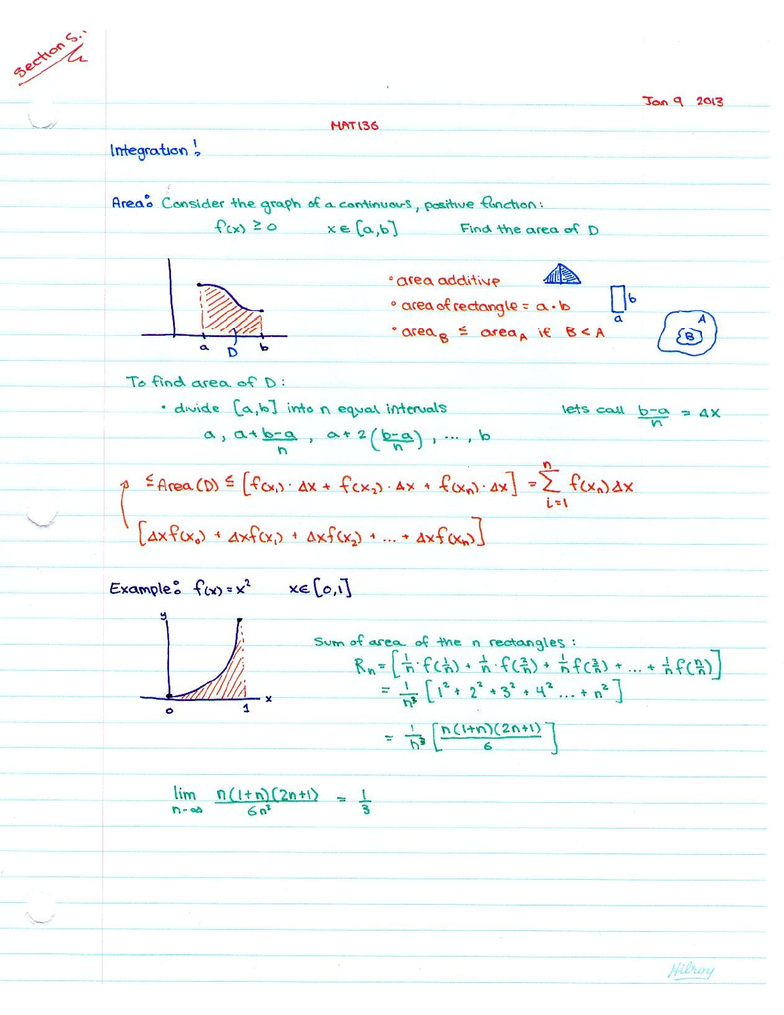 Section 5.1
Jan 9 2013
MAT136
Integration!
Area: Consider the graph of a continuous, positive function:
f(x) ≥ 0 x ∈ [a,b] Find the area of D
• area additive
• area of rectangle = a · b
b
a
• area_B ≤ area_A if B < A
A
B
a D b
To find area of D:
• divide [a,b] into n equal intervals lets call (b-a)/n = Δx
a, a + (b-a)/n, a + 2((b-a)/n), ..., b
≤ Area(D) ≤ [f(x₁)·Δx + f(x₂)·Δx + f(xₙ)·Δx] = Σ_{i=1}^{n} f(xₙ)Δx
[Δxf(x₀) + Δxf(x₁) + Δxf(x₂) + ... + Δxf(xₙ)]
Example: f(x) = x² x ∈ [0,1]
y
0 1 x
Sum of area of the n rectangles:
Rₙ = [1/n · f(1/n) + 1/n · f(2/n) + 1/n f(3/n) + ... + 1/n f(n/n)]
= 1/n³ [1² + 2² + 3² + 4² ... + n²]
= 1/n³ [n(1+n)(2n+1)/6]
lim n→∞ n(1+n)(2n+1)/6n³ = 1/3
Hilroy